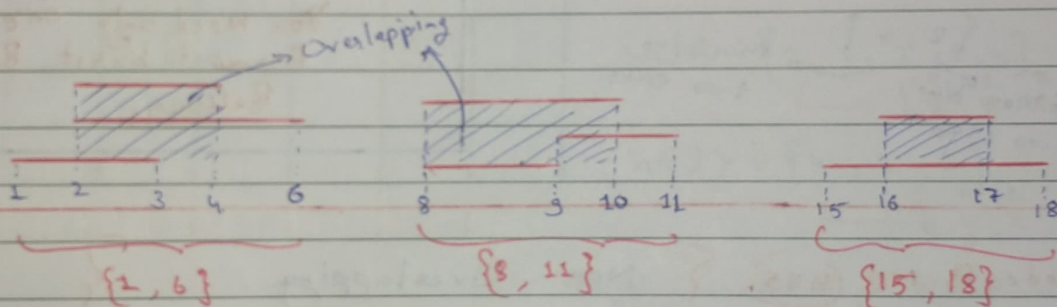 Overlapping
1 2 3 4 6 8 9 10 11 15 16 17 18
{1, 6} {8, 11} {15, 18}